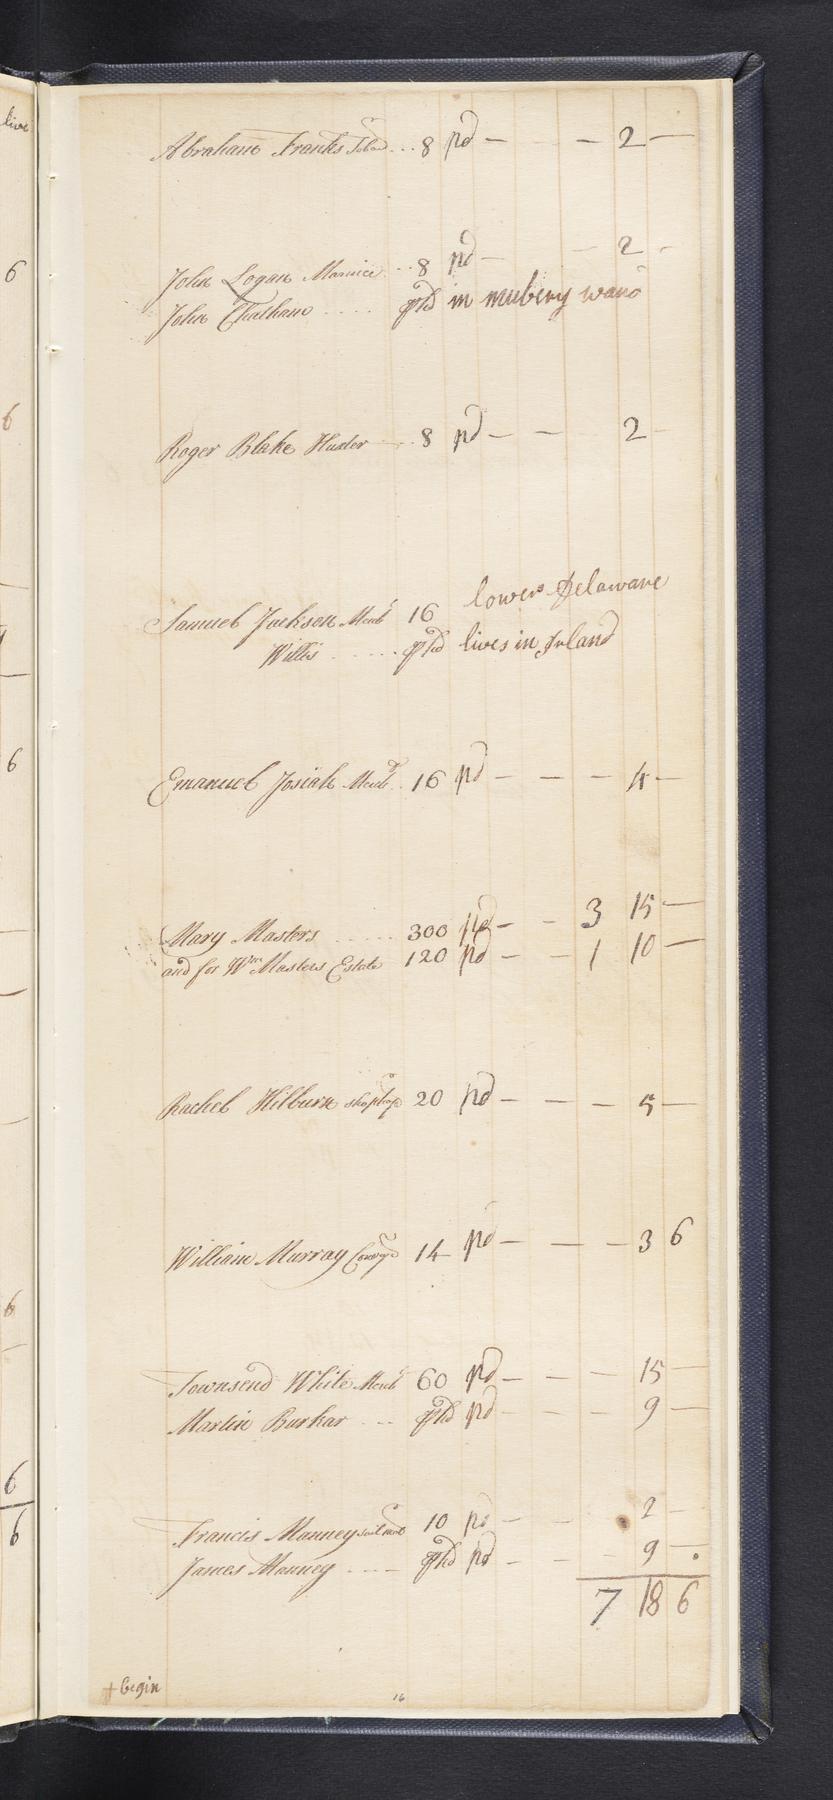 live
Abraham Franks Tobac.. ... 8 pd — — 2 —
John Logan Marrice ... 8 pd — — 2 -
John Chatham ..... pHd in mubery ward
Roger Blake Huxter ... 8 pd — — 2 -
Samuel Jackson Merct 16 lower Delaware
Willis ...... pHd lives in Irland
Emanuel Josiah Merct 16 pd — — — 4 —
Mary Masters ...... 300 pd — — 3 15 —
and for Wm Masters Estate 120 pd — — 1 10 —
Rachel Hilburn shopkeep 20 pd — — — 5 —
William Murray 14 pd — — — 3 6
Townsend White Merct 60 pd — — — 15 —
Martin Burkar ... pHd pd — — — 9 —
Francis Manney 10 pd — — 2 —
James Manney .... pHd pd — — 9 —
7 18 6
+ begin
16
6
6
6
6
6
6